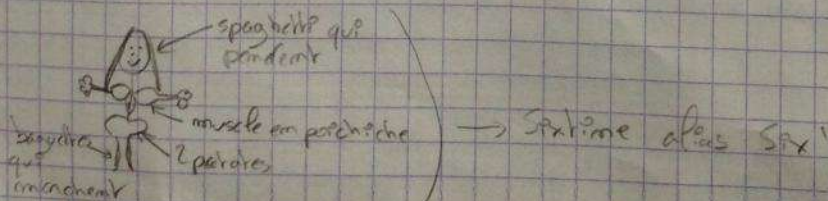 spaghetti qui
pendent
muscle em poichiche
2 poires
baguettes
qui
marchent
→ Sixtime alias Six'